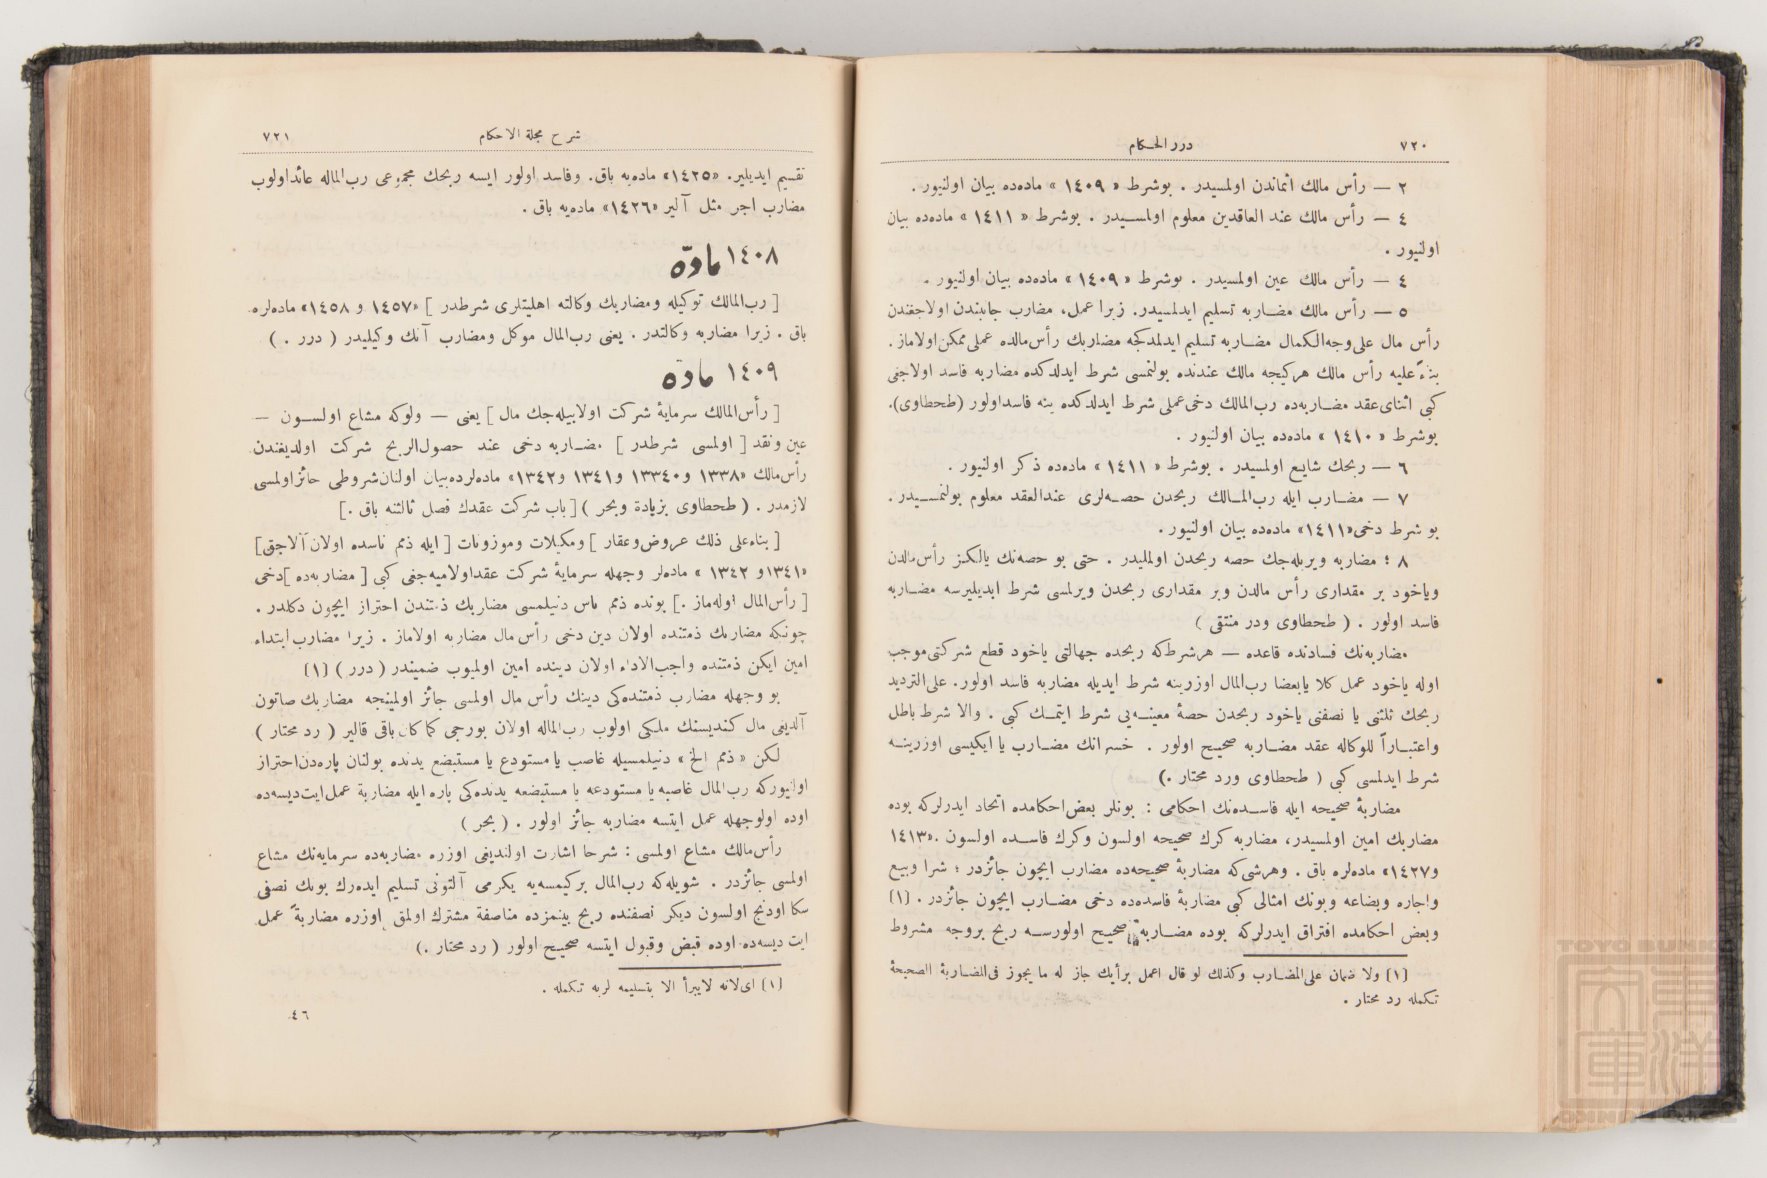 ٧٢٠
درر الحكام
٢ — رأس مالك اثماندن اولمسيدر . بوشرط « ١٤٠٩ » ماده‌ده بيان اولنيور .
٤ — رأس مالك عند العاقدين معلوم اولمسيدر . بوشرط « ١٤١١ » ماده‌ده بيان
اولنيور .
٤ — رأس مالك عين اولمسيدر . بوشرط « ١٤٠٩ » ماده‌ده بيان اولنيور .
٥ — رأس مالك مضاربه تسليم ايدلمسيدر. زيرا عمل، مضارب جانبندن اولاجغندن
رأس مال على‌وجه‌الكمال مضاربه تسليم ايدلمدكجه مضاربك رأس‌مالده عملى ممكن اولاماز .
بناءً عليه رأس مالك هركيجه مالك عندنده بولنمسى شرط ايدلدكده مضاربه فاسد اولاجغى
كبى اثناى عقد مضاربه‌ده رب‌المالك دخى عملى شرط ايدلدكده ينه فاسد اولور (طحطاوى).
بوشرط « ١٤١٠ » ماده‌ده بيان اولنيور .
٦ — ربحك شايع اولمسيدر . بوشرط « ١٤١١ » ماده‌ده ذكر اولنيور .
٧ — مضارب ايله رب‌المالك ربحدن حصه‌لرى عندالعقد معلوم بولنمسيدر .
بو شرط دخى «١٤١١» ماده‌ده بيان اولنيور .
٨ ؛ مضاربه ويريله‌جك حصه ربحدن اولمليدر . حتى بو حصه‌نك يالكز رأس‌مالدن
وياخود بر مقدارى رأس مالدن وبر مقدارى ربحدن ويرلمسى شرط ايديليرسه مضاربه
فاسد اولور . ( طحطاوى ودر منتقى )
مضاربه‌نك فسادنده قاعده — هرشرط‌كه ربحده جهالتى ياخود قطع شركتى موجب
اوله ياخود عمل كلا يابعضا رب‌المال اوزرينه شرط ايديله مضاربه فاسد اولور. على‌الترديد
ربحك ثلثنى يا نصفنى ياخود ربحدن حصهٔ معينه‌يى شرط ايتمك كبى . والا شرط باطل
واعتباراً للوكاله عقد مضاربه صحيح اولور . خسرانك مضارب يا ايكيسى اوزرينه
شرط ايدلمسى كبى ( طحطاوى ورد محتار .)
مضاربهٔ صحيحه ايله فاسده‌نك احكامى : بونلر بعض احكامده اتحاد ايدرلركه بوده
مضاربك امين اولمسيدر، مضاربه كرك صحيحه اولسون وكرك فاسده اولسون .«١٤١٣
و١٤٢٧» ماده‌لره باق . وهرشى‌كه مضاربهٔ صحيحه‌ده مضارب ايچون جائزدر ؛ شرا وبيع
واجاره وبضاعه وبونك امثالى كبى مضاربهٔ فاسده‌ده دخى مضارب ايچون جائزدر . (١)
وبعض احكامده افتراق ايدرلركه بوده مضاربهٔ صحيح اولورسه ربح بروجه مشروط
(١) ولا ضمان على‌المضارب وكذلك لو قال اعمل برأيك جاز له ما يجوز فى‌المضاربة الصحيحة
تكمله رد محتار .
شرح مجلة الاحكام
٧٢١
تقسيم ايديلير. «١٤٢٥» ماده‌يه باق. وفاسد اولور ايسه ربحك مجموعى رب‌الماله عائداولوب
مضارب اجر مثل آلير «١٤٢٦» ماده‌يه باق .
١٤٠٨ مادّه
[ رب‌المالك توكيله ومضاربك وكالته اهليتلرى شرطدر ] «١٤٥٧ و ١٤٥٨» ماده‌لره
باق . زيرا مضاربه وكالتدر . يعنى رب‌المال موكل ومضارب آنك وكيليدر ( درر . )
١٤٠٩ مادّه
[ رأس‌المالك سرمايهٔ شركت اولابيله‌جك مال ] يعنى — ولوكه مشاع اولسون —
عين ونقد [ اولمسى شرطدر ] مضاربه دخى عند حصول‌الربح شركت اولديغندن
رأس‌مالك «١٣٣٨ و١٣٣٤٠ و١٣٤١ و١٣٤٢» ماده‌لرده‌بيان اولنان‌شروطى حائزاولمسى
لازمدر . ( طحطاوى بزيادة وبحر ) [ باب شركت عقدك فصل ثالثنه باق .]
[ بناءعلى ذلك عروض‌وعقار ] ومكيلات وموزونات [ ايله ذمم ناسده اولان آلاجق]
«١٣٤١و ١٣٤٢ » ماده‌لر وجهله سرمايهٔ شركت عقداولاميه‌جغى كبى [ مضاربه‌ده ]دخى
[ رأس‌المال اوله‌ماز .] بونده ذمم ناس دنيلمسى مضاربك ذمتندن احتراز ايچون دكلدر .
چونكه مضاربك ذمتنده اولان دين دخى رأس مال مضاربه اولاماز . زيرا مضارب ابتداء
امين ايكن ذمتنده واجب‌الاداء اولان دينده امين اولميوب ضميندر ( درر ) (١)
بو وجهله مضارب ذمتنده‌كى دينك رأس مال اولمسى جائز اولمينجه مضاربك صاتون
آلديغى مال كنديسنك ملكى اولوب رب‌الماله اولان بورجى كما كان باقى قالير ( رد محتار )
لكن « ذمم الخ » دنيلمسيله غاصب يا مستودع يا مستبضع يدنده بولنان پاره‌دن احتراز
اولنيوركه رب‌المال غاصبه يا مستودعه يا مستبضعه يدنده‌كى پاره ايله مضاربة عمل‌ايت‌ديسه‌ده
اوده اولوجهله عمل ايتسه مضاربه جائز اولور . ( بحر )
رأس‌مالك مشاع اولمسى : شرحا اشارت اولنديغى اوزره مضاربه‌ده سرمايه‌نك مشاع
اولمسى جائزدر . شويله‌كه رب‌المال بركيمسه‌يه يكرمى آلتونى تسليم ايده‌رك بونك نصفى
سكا اودنج اولسون ديكر نصفنده ربح بينمزده مناصفة مشترك اولمق اوزره مضاربةً عمل
ايت ديسه‌ده اوده قبض وقبول ايتسه صحيح اولور ( رد محتار .)
(١) اى‌لانه لايبرأ الا بتسليمه لربه تكمله .
٤٦
TOYO BUNKO
東洋文庫